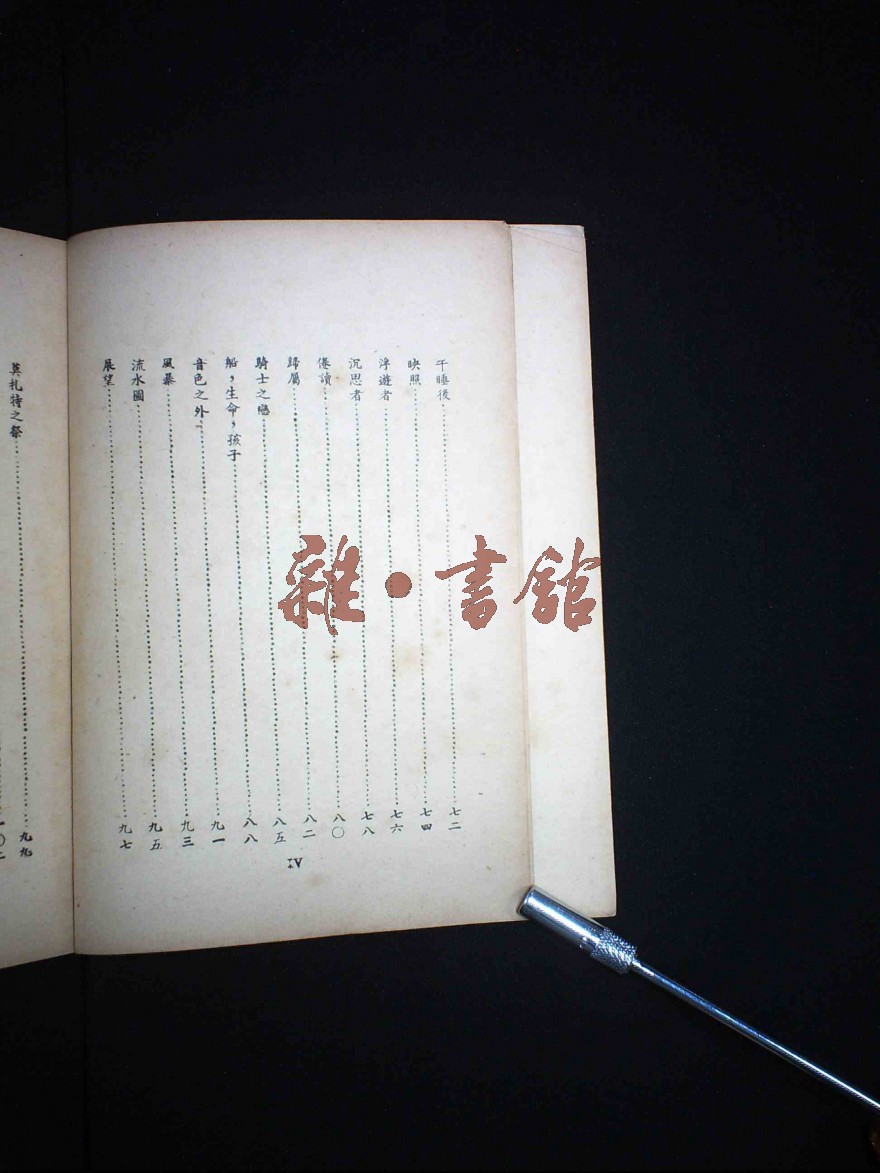 午睡後……七二
映照……七四
浮遊者……七六
沉思者……七八
倦讀……八〇
歸屬……八二
騎士之戀……八五
船，生命，孩子……八八
音色之外……九一
風暴……九三
流水圖……九五
展望……九七
IV
莫扎特之祭……九九
雜·書館